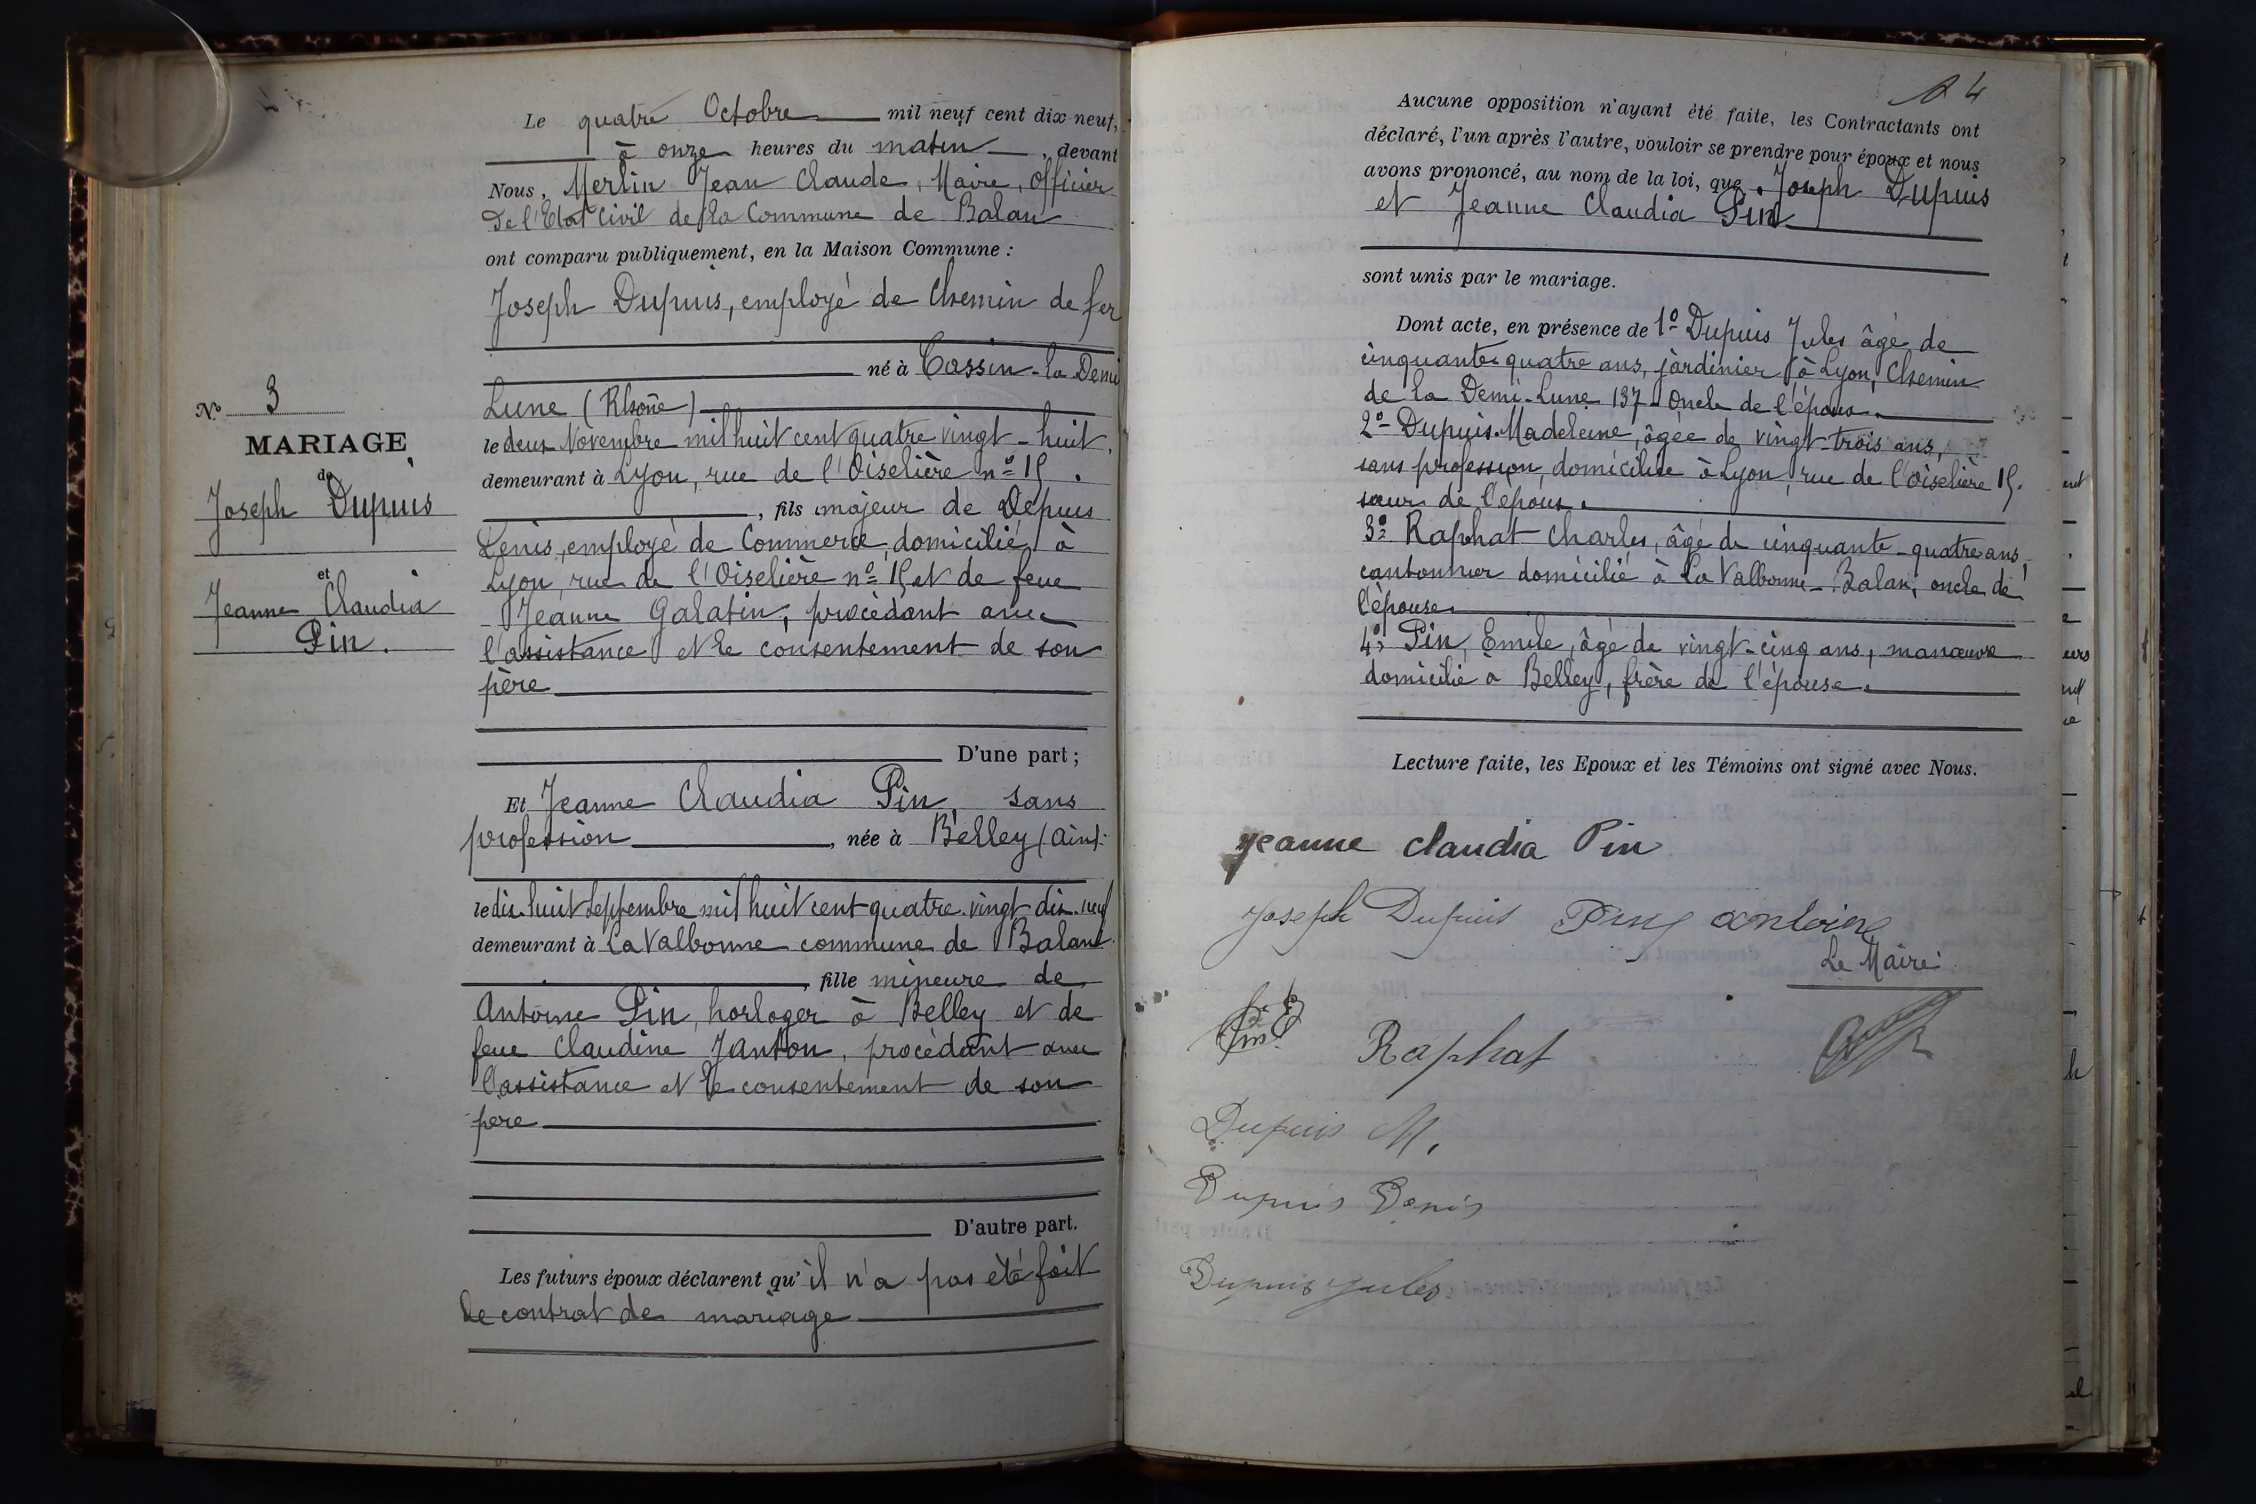 Le quatre Octobre mil neuf cent dix neuf,
à onze heures du matin, devant
Nous, Merlin Jean Claude, Maire, Officier
de l'Etat Civil de la Commune de Balan
ont comparu publiquement, en la Maison Commune :
Joseph Dupuis, employé de Chemin de fer
né à Tassin-la-Demi
Lune (Rhône)
le deux Novembre mil huit cent quatre vingt-huit,
demeurant à Lyon, rue de l'Oiselière n° 15.
, fils majeur de Dupuis
Denis, employé de Commerce, domicilié à
Lyon, rue de l'Oiselière n° 15 et de feue
Jeanne Galatin, procèdant avec
l'assistance et le consentement de son
père
D'une part ;
N° 3
MARIAGE
de
Joseph Dupuis
et
Jeanne Claudia
Pin.
Et Jeanne Claudia Pin, sans
profession, née à Belley (Ain).
le dix-huit Septembre mil huit cent quatre-vingt dix-neuf
demeurant à La Valbonne commune de Balan
, fille mineure de
Antoine Pin, horloger à Belley et de
feue Claudine Janton, procèdant avec
l'assistance et le consentement de son
père
D'autre part.
Les futurs époux déclarent qu'il n'a pas été fait
de contrat de mariage
4
Aucune opposition n'ayant été faite, les Contractants ont
déclaré, l'un après l'autre, vouloir se prendre pour époux et nous
avons prononcé, au nom de la loi, que Joseph Dupuis
et Jeanne Claudia Pin
sont unis par le mariage.
Dont acte, en présence de 1° Dupuis Jules âgé de
cinquante-quatre ans, jardinier à Lyon, Chemin
de la Demi-Lune 137 - Oncle de l'époux.
2° Dupuis Madeleine, âgée de vingt-trois ans,
sans profession, domiciliée à Lyon, rue de l'Oiselière 15.
sœur de l'époux.
3° Raphat Charles, âgé de cinquante-quatre ans,
cantonnier domicilié à La Valbonne-Balan, oncle de
l'épouse.
4° Pin, Emile, âgé de vingt-cinq ans, manœuvre
domicilié à Belley, frère de l'épouse.
Lecture faite, les Epoux et les Témoins ont signé avec Nous.
Jeanne Claudia Pin
Joseph Dupuis Pin Antoine
Le Maire
Pin E
Raphat
Dupuis M.
Dupuis Denis
Dupuis Jules